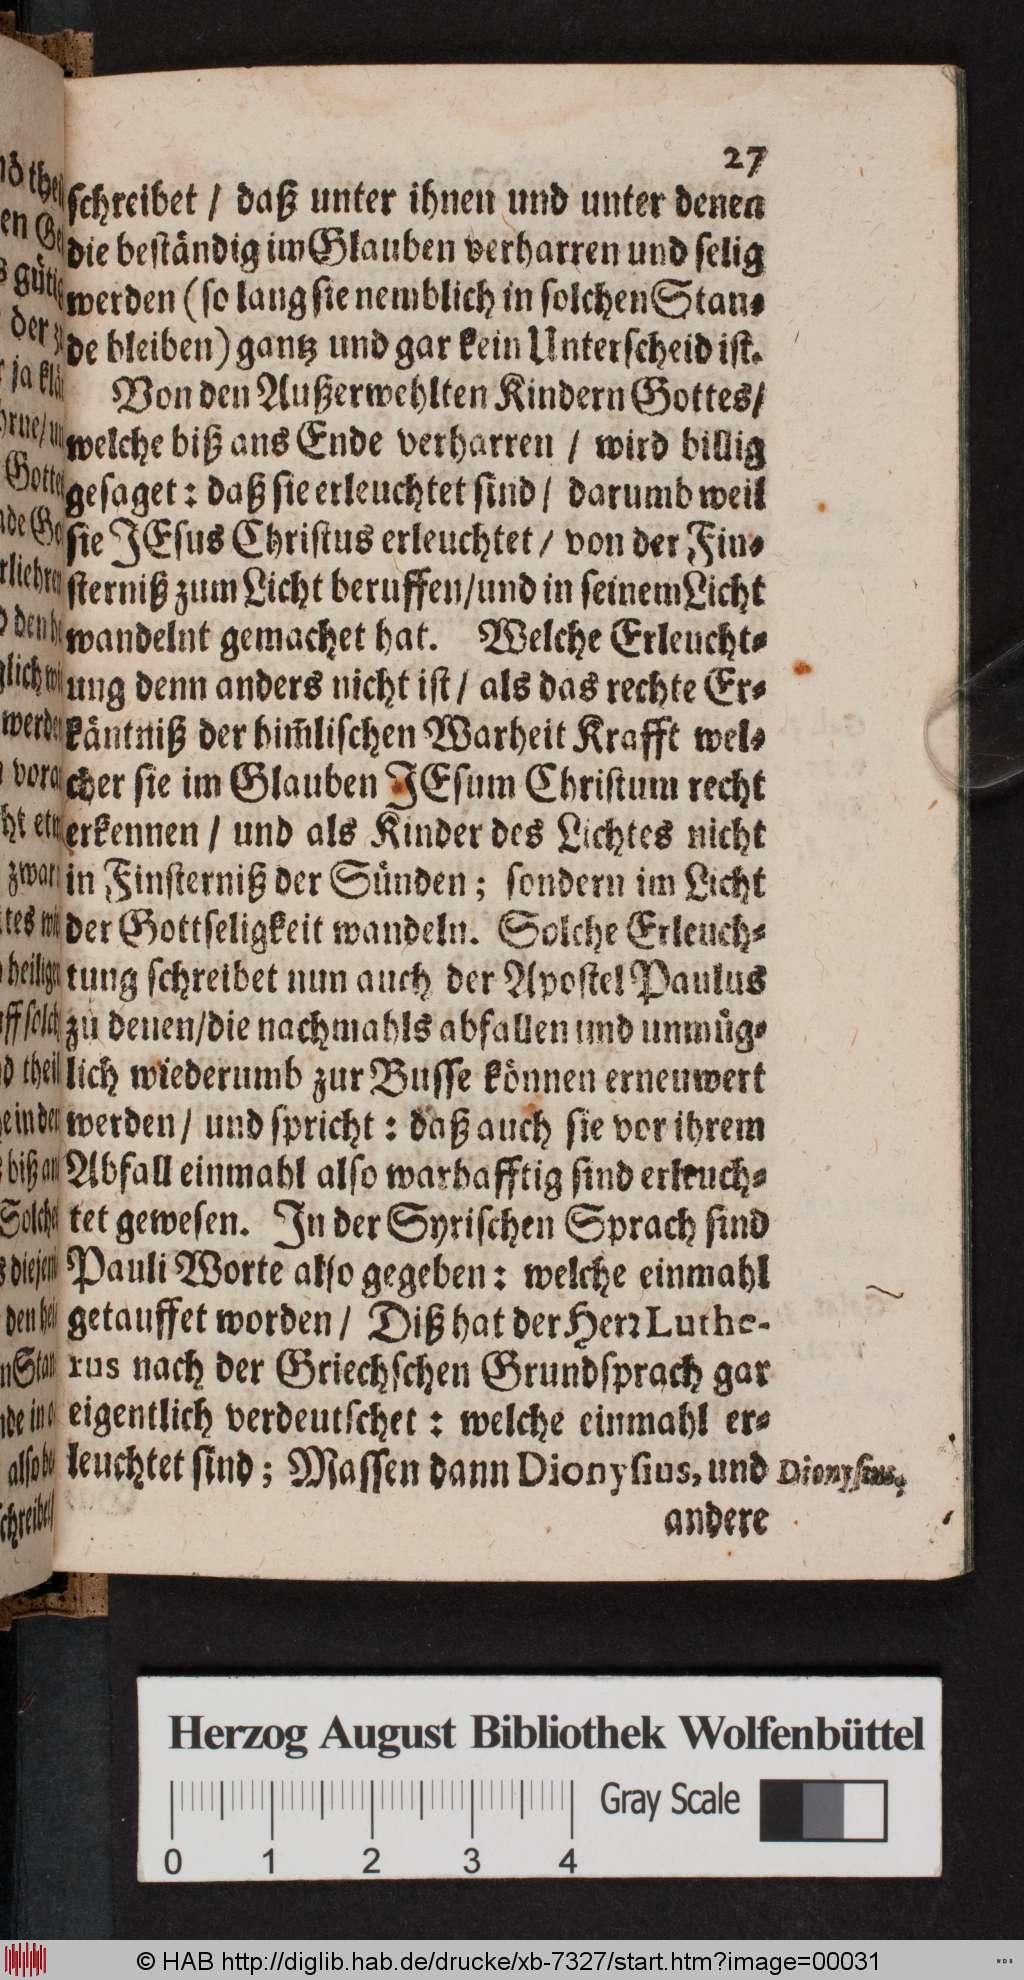 27
schreibet / daß unter ihnen und unter denen
die beständig im Glauben verharren und selig
werden (so lang sie nemblich in solchen Stan-
de bleiben) gantz und gar kein Unterscheid ist.
Von den Außerwehlten Kindern Gottes/
welche biß ans Ende verharren / wird billig
gesaget: daß sie erleuchtet sind / darumb weil
sie JEsus Christus erleuchtet / von der Fin-
sterniß zum Licht beruffen/und in seinem Licht
wandelnt gemachet hat. Welche Erleucht-
ung denn anders nicht ist / als das rechte Er-
käntniß der him̃lischen Warheit Krafft wel-
cher sie im Glauben JEsum Christum recht
erkennen / und als Kinder des Lichtes nicht
in Finsterniß der Sünden; sondern im Licht
der Gottseligkeit wandeln. Solche Erleuch-
tung schreibet nun auch der Apostel Paulus
zu denen/die nachmahls abfallen und unmüg-
lich wiederumb zur Busse können erneuwert
werden / und spricht: daß auch sie vor ihrem
Abfall einmahl also warhafftig sind erleuch-
tet gewesen. In der Syrischen Sprach sind
Pauli Worte also gegeben: welche einmahl
getauffet worden / Diß hat der Herr Luthe-
rus nach der Griechschen Grundsprach gar
eigentlich verdeutschet: welche einmahl er-
leuchtet sind; Massen dann Dionysius, und
Dionysius,
andere
Herzog August Bibliothek Wolfenbüttel
Gray Scale
0 1 2 3 4
© HAB http://diglib.hab.de/drucke/xb-7327/start.htm?image=00031